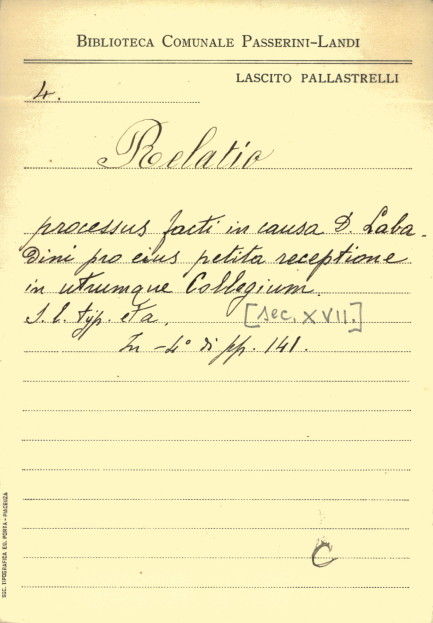 BIBLIOTECA COMUNALE PASSERINI-LANDI
LASCITO PALLASTRELLI
4.
Relatio
processus facti in causa D. Laba-
dini pro eius petita receptione
in utrumque Collegium.
S. l. typ. et a. [sec. XVII.]
In -4° di pp. 141.
C
SOC. TIPOGRAFICA ED. PORTA - PIACENZA